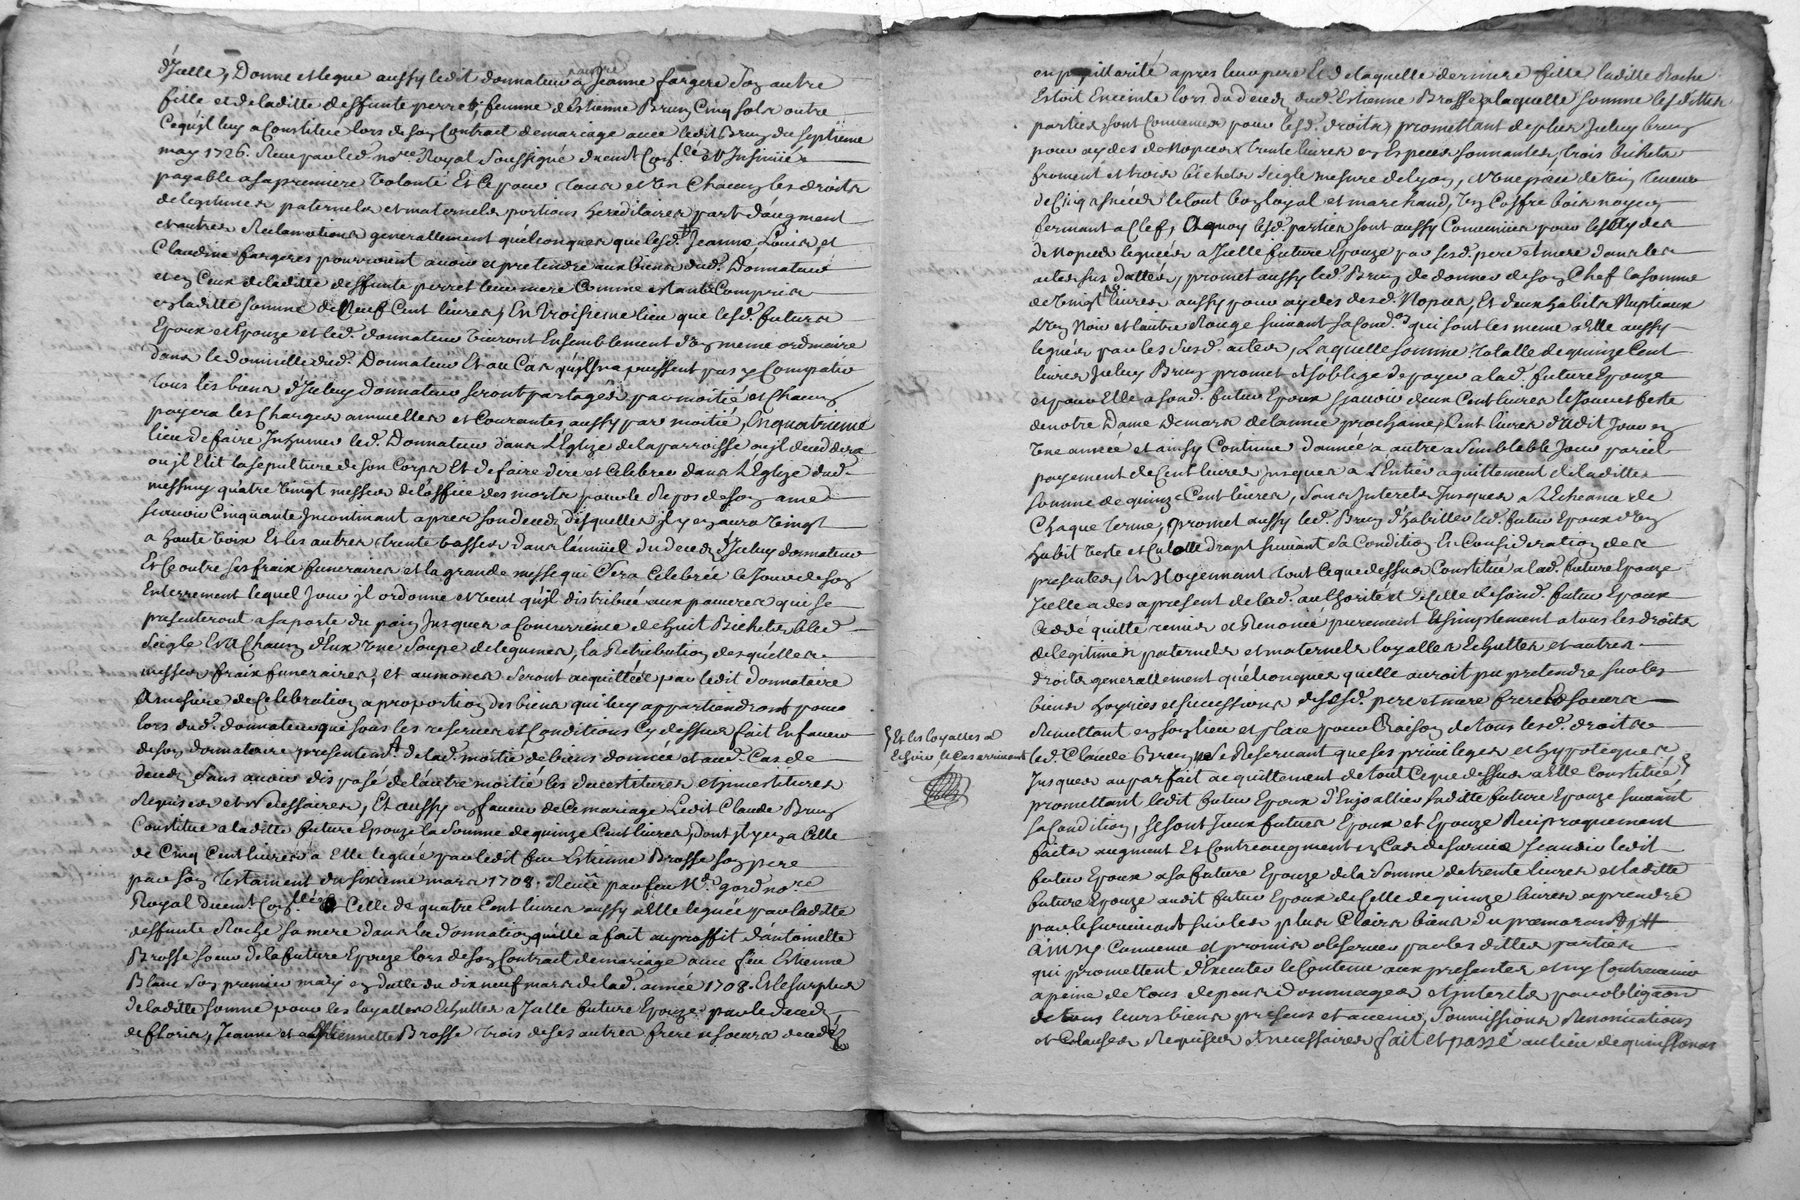 d'Icelle, Donne et legue aussy ledit donnateur a Jeanne fargere Soy autre
fille et de laditte deffunte perret, femme d'Estienne Bruy Cinq sols outre
Ce qu'jl luy a Constitué lors de soy Contract de mariage avec ledit Bruy du septieme
may 1726. Receu par led. nore Royal Soussigné duemt Con.llé et Insinüé
payable a sa premiere Volonté Et Ce pour tous et Vn Chacuy les droits
de legitimes paternels et maternels portions hereditaires part d'augment
et autres Reclamations generallement quélconques que lesd. Jeanne Louis, et
Claudine fargeres pourroient avoir et pretendre aux biens dud. Donnateur
et ey Ceux de laditte deffunte perret leur mere Comme estants Compris
ey laditte somme de Neuf Cent livres, En troisieme lieu que lesd. futurs
Epoux et Epouze et led. donnateur Vivront Ensemblement d'Vy meme ordinaire
dans le domicille dud. Donnateur Et au Cas qu'jls ne puissent pas y Compatir
tous les biens d'Iceluy donnateur seront partagés par moitié et Chacuy
payera les Charges annuelles et Courantes aussy par moitié, En quatrieme
lieu de faire Inhumer led. Donnateur dans L'Eglize de la parroisse ou jl decedera
ou jl Elit la sepulture de son Corps Et de faire dire et Celebrer dans L'Eglize dud.
messimy quatre Vingt messes de l'office des morts pour le Repos de soy ame
scavoir Cinquante Incontinant apres son deces desquelles jl y ey aura Vingt
a haute Voix Et les autres trente basses dans l'annüel du deces d'Iceluy donnateur
Et Ce outre ses fraix funeraires et la grande messe qui Sera Celebrée le Jour de soy
Enterrement lequel Jour jl ordonne et Veut qu'jl distribuë aux pauvres qui se
presenteront a sa porte du paiy Jusques a Concurrence de huit Bichets bled
Seigle Et a Chacuy d'Eux Vne Soupe de legumes, la Retribution desquelles
messes fraix funeraires, et aumones Seront acquittées par ledit donnataire
a mesure de Celebration a proportion des biens qui luy appartiendront pour
lors dud. donnateur que sous les reserves et Conditions Cy dessus fait En faveur
de soy donnataire presentemt de lad. moitié de biens donnée et aud. Cas de
deces sans avoir disposé de lautre moitié les devestitures et jnvestitures
Requises et Necessaires, Et aussy ey faveur de Ce mariage Ledit Claude Bruy
Constitue a laditte future Epouze la Somme de quinze Cent livres, dont jl y ey a Celle
de Cinq Cent livres a Elle leguée par ledit feu Estienne Brosse soy pere
par soy testament du sixieme mars 1708. Receü par feu Me. gord nore
Royal duemt Con.llé Et Celle de quatre Cent livres aussy a Elle leguée par laditte
deffunte Roche sa mere dans la donnation qu'elle a fait au proffit d'antoinette
Brosse soeur de la future Epouze lors de soy Contract de mariage avec feu Estienne
Blanc Soy premier mary ey datte du dix neuf mars de lad. année 1708. Et le surplus
de laditte somme pour les loyattes Echuttes a Icelle future Epouze par le deces
de floris, Jeanne et Estiennette Brosse trois de ses autres frere et soeurs decedés
en pupillarité apres leur pere Et de laquelle derniere fille laditte Roche
Estoit Enceinte lors du deces dud. Estienne Brosse, a laquelle somme lesdittes
parties sont Convenues pour lesd. droits, promettant de plus Iceluy bruy
pour aydes de Nopces trente livres ey Especes sonnantes, trois bichets
froment et trois bichets seigle mesure de Lyoy, et Vne piece de Viy teneur
de Cinq asnees le tout boy loyal et marchand, Vy Coffre bois noyer
fermant a Clef, a quoy lesd. parties sont aussy Convenues pour les aydes
de Nopces leguées a Icelle future Epouze par sesd. pere et mere dans les
actes sus dattés, promet aussy led. Bruy de donner de soy Chef la somme
de Vingt livres aussy pour aydes desd. Nopces, Et deux habits Nuptiaux
L'Vy Noir et lautre Rouge suivant sa Condon qui sont les meme a Elle aussy
legués par les susd. actes, Laquelle somme totalle de quinze Cent
livres Iceluy Bruy promet et s'oblige de payer a lad. future Epouze
et pour Elle a sond. futur Epoux scavoir deux Cent livres le Jour et feste
de notre Dame de mars de lannée prochaine, Cent livres dudit Jour ey
Vne année et ainsy Continuer d'année a autre a Semblable Jour pareil
payement de Cent livres jusques a L'Entier aquittement de laditte
somme de quinze Cent livres, Sans Interets Jusques a L'Echeance de
Chaque terme, promet aussy led. Bruy d'habiller led. futur Epoux d'Vy
habit Veste et Culotte drapt suivant sa Condition En Consideration des
presentes, En Moyennant tout Ce que dessus Constitué a lad. future Epouze
Icelle a des a present de lad. authorité et de Celle de sond. futur Epoux
Cedé quitté remis et Renoncé purement Et simplement a tous les droits
de legitimes paternels et maternels loyattes Echuttes et autres
droits generallement quélconques quelle auroit pu pretendre sur les
biens hoyries et successions de sesd. pere et mere frere Et soeurs
Remettant ey soy lieu et place pour Raisoy de tous lesd. droits
led. Claude Bruy ne se Reservant que ses privileges et hypoteques
Et les loyattes a
Echoir le Cas arrivant
Jusques au parfait acquittement de tout Ce que dessus a Elle Constitué
promettant ledit futur Epoux d'Enjoallier laditte future Epouze suivant
sa Condition, se sont Iceux futurs Epoux et Epouze Reciproquement
faits augment Et Contreaugment ey Cas de survie scavoir ledit
futur Epoux a sa future Epouze de la Somme de trente livres et laditte
future Epouze audit futur Epoux de Celle de quinze livres a prendre
par le survivant sur les plus Clairs biens du premourant
ainsy Convenu et promis observer par les dittes parties
qui promettent d'Executer le Contenu aux presentes et ny Contrevenir
a peine de tous depens dommages et jnterets par obligaon
de tous leurs biens presens et avenir, Soumissions Renonciations
et Clauses Requises et necessaires fait et passé au lieu de quinsonas